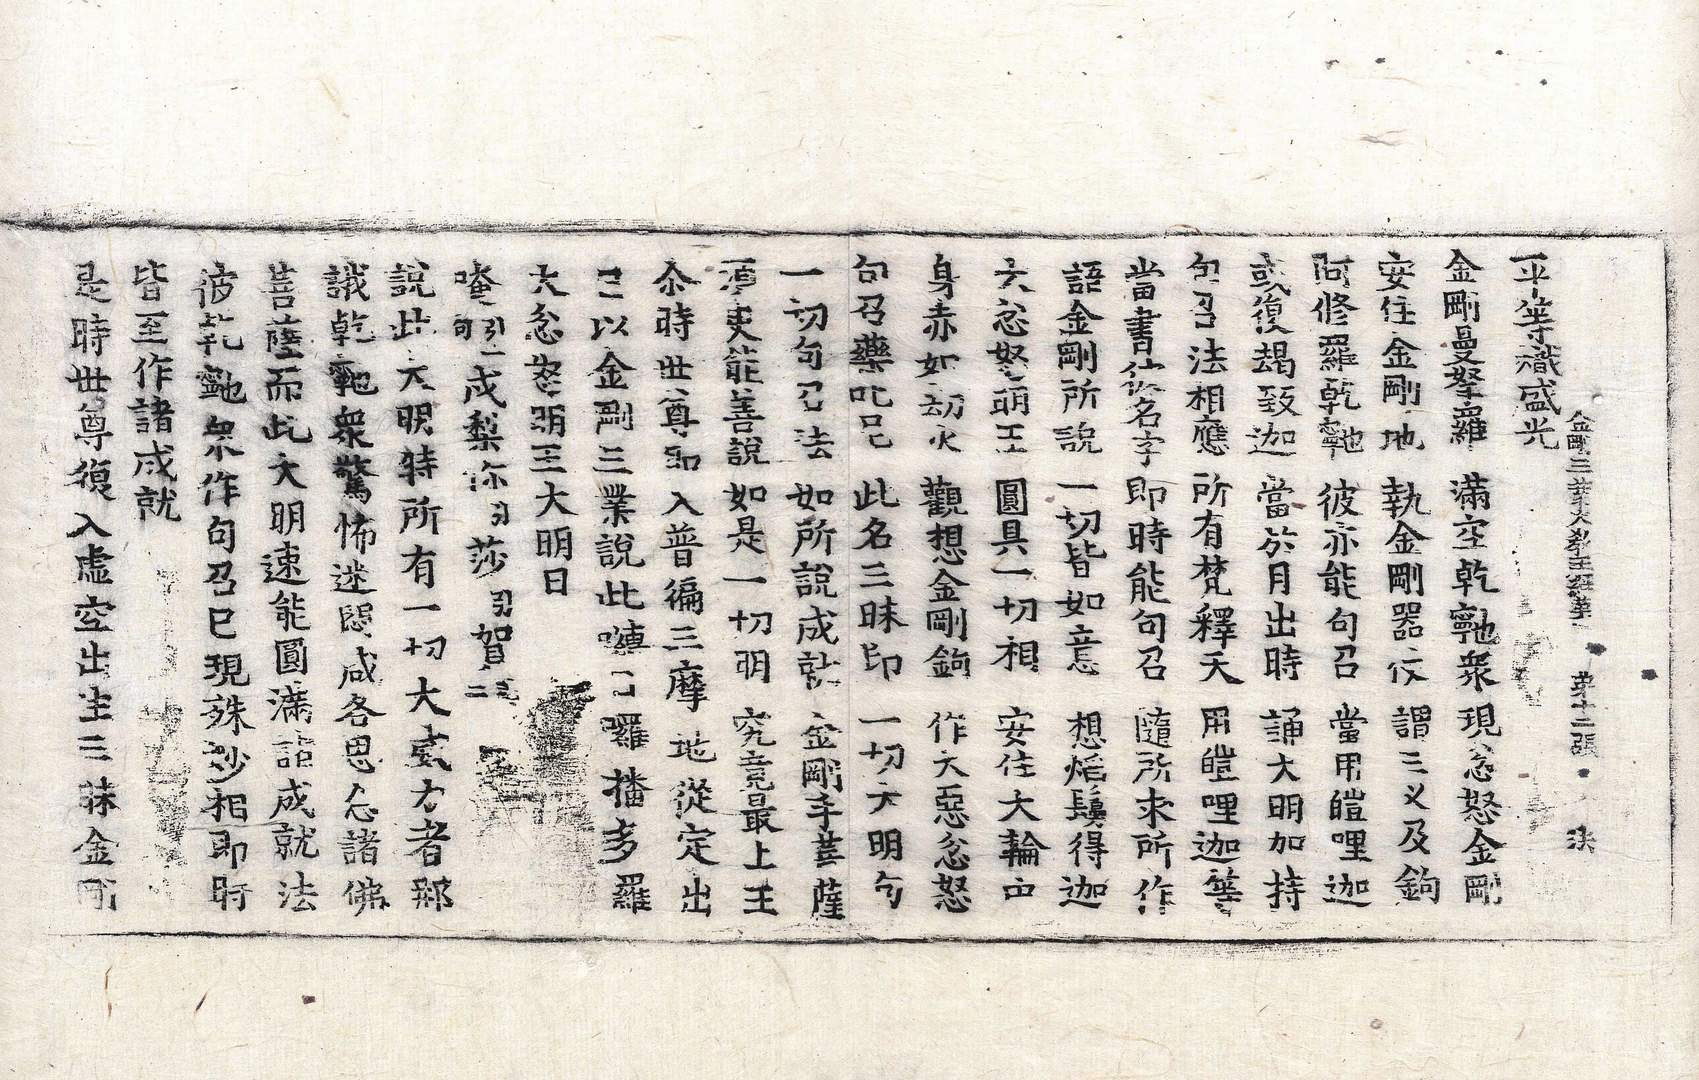 平等熾盛光
金剛三業大教王經 第十二張 法
金剛曼拏羅 滿空乾闥衆 現忿怒金剛
安住金剛地 執金剛器仗 謂三叉及鉤
阿修羅乾闥 彼亦能句召 當用皚哩迦
或復朅致迦 當於月出時 誦大明加持
句召法相應 所有梵釋天 用皚哩迦等
當書彼名字 即時能句召 隨所求所作
語金剛所說 一切皆如意 想焰鬘得迦
大忿怒明王 圓具一切相 安住大輪中
身赤如劫火 觀想金剛鉤 作大惡忿怒
句召藥叱尼 此名三昧印 一切大明句
一切句召法 如所說成就 金剛手菩薩
須臾能善說 如是一切明 究竟最上王
尒時世尊即入普徧三摩地從定出
已以金剛三業說此嚩日囉播多羅
大忿怒明王大明曰
唵引 莎 賀
說此大明時所有一切大威力者那
誐乾闥衆驚怖迷悶咸各思念諸佛
菩薩而此大明速能圓滿諸成就法
彼乾闥衆作句召已現殊妙相即時
皆至作諸成就
是時世尊復入虛空出生三昧金剛